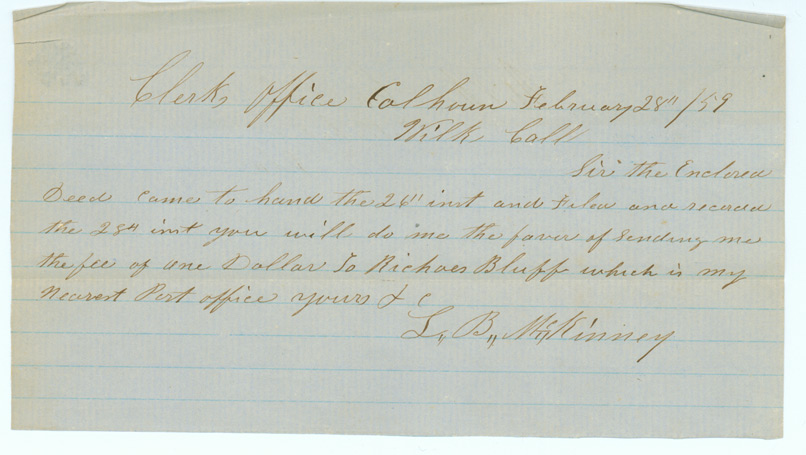 Clerks Office Calhoun February 28" /59
Wilk Call
Sir the Enclosed
Deed came to hand the 26" inst and Filed and record
the 28th inst you will do me the favor of Sending me
the fee of one Dollar To Bluff which is my
Nearest Post office yours & c
L,, B,, McKinney